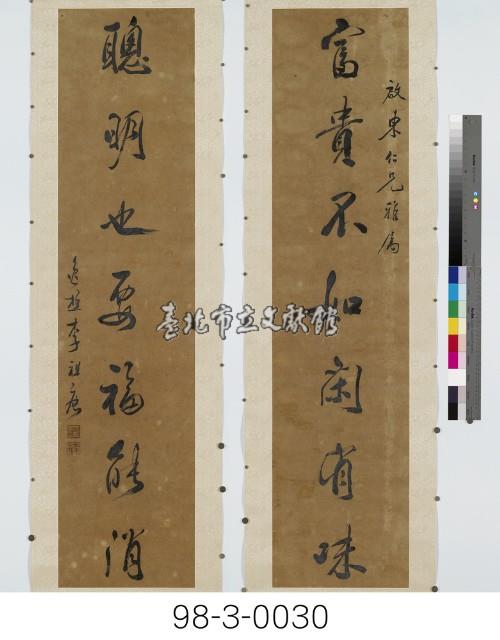 啟東仁兄雅屬
富貴不如閒有味
聰明也要福能消
李祖庚
臺北市立文獻館
98-3-0030